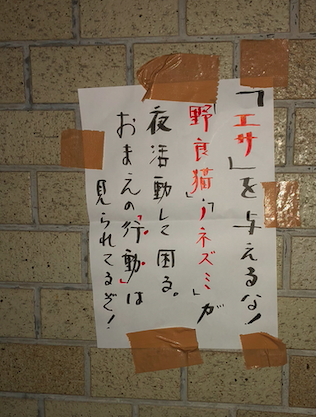 「エサ」を与えるな!
「野良猫」「ノネズミ」が
夜活動して困る。
おまえの「行動」は
見られてるぞ!